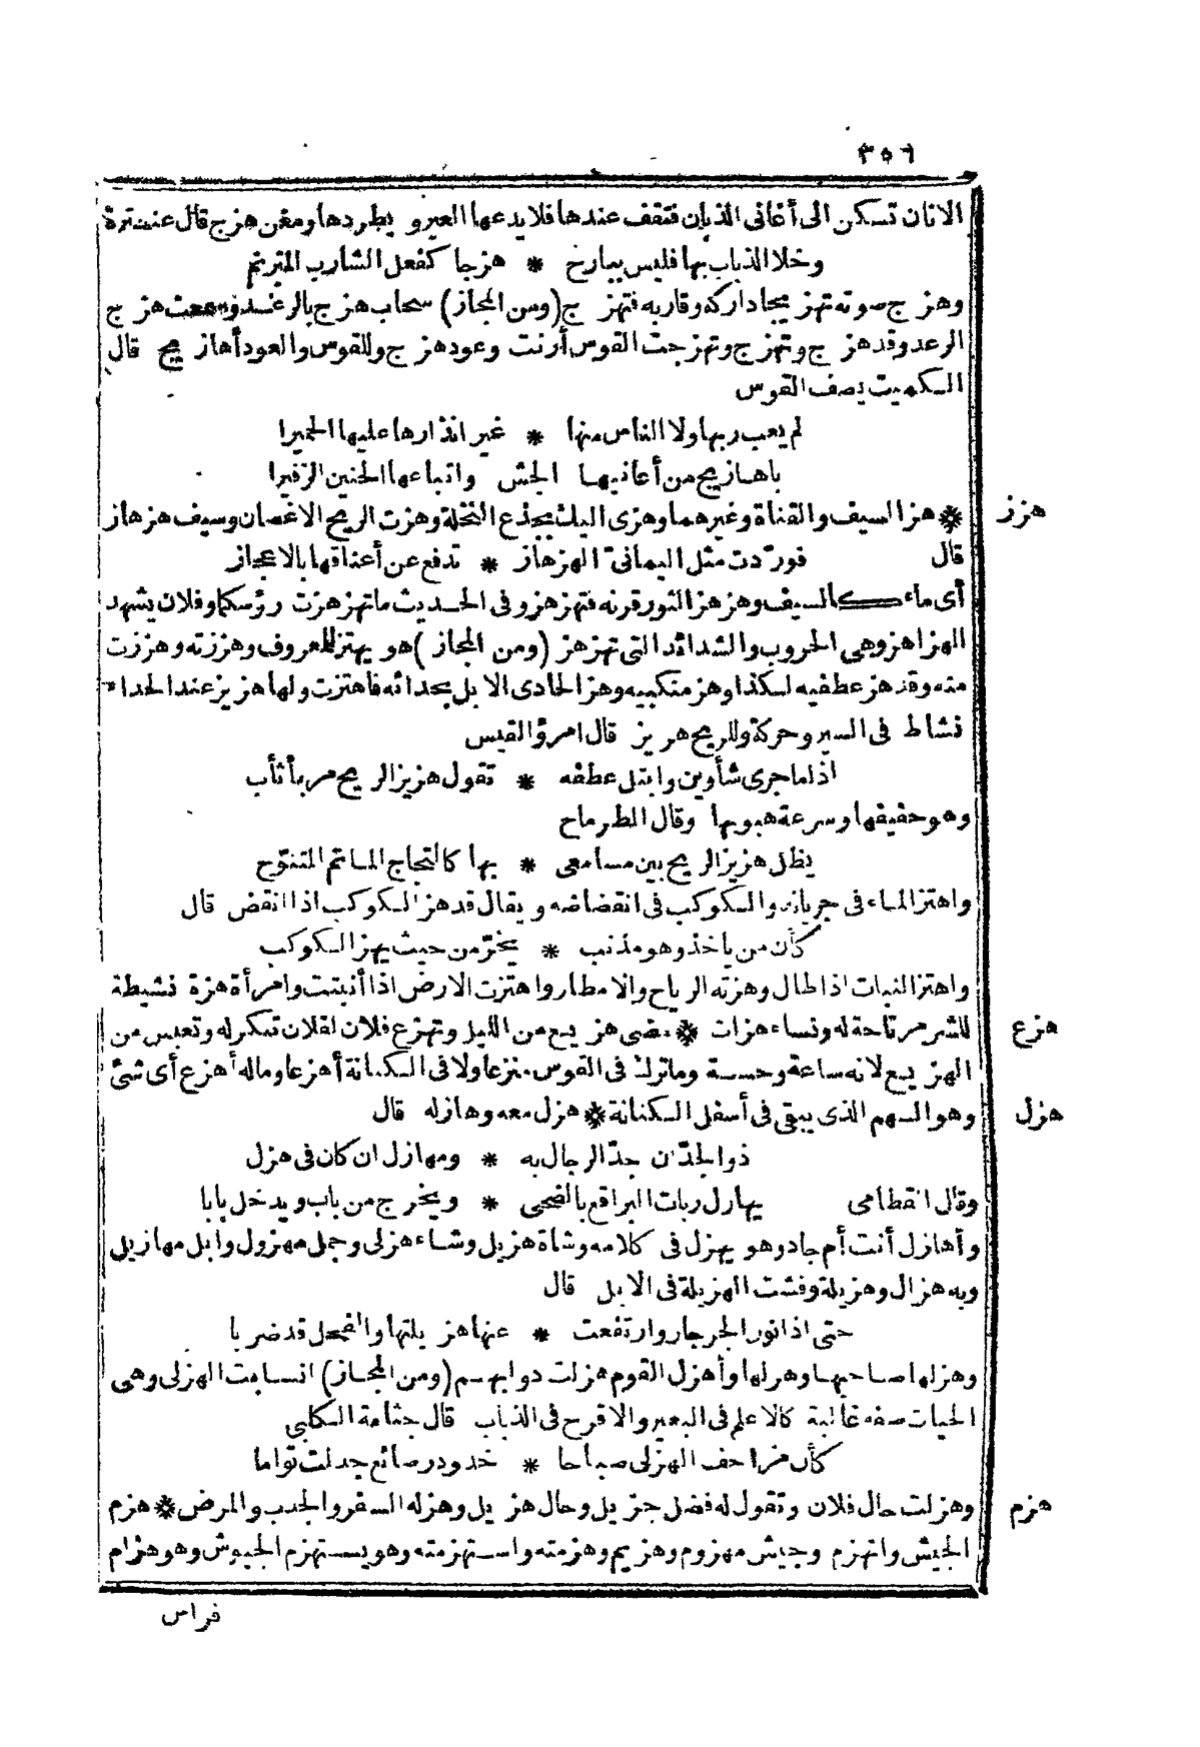 ٣٥٦
الاتان تسكن الى أغانى الذبان فتقف عندها فلا يدعها العير و يطردها ومغن هزج قال عنترة
وخلا الذباب بها فليس ببارح * هزجا كفعل الشارب المترنم
وهزج صوته تهزيجا داركه وقاربه فتهزج (ومن المجاز) سحاب هزج بالرعد وسمعت هزج
الرعد وقد هزج وتهزج وتهزجت القوس أرنت وعود هزج وللقوس والعود أهازيج قال
الكميت يصف القوس
لم يعب ربها ولا الناس منها * غير انذارها عليها الحميرا
باهازيج من أغانيها الجش واتباعها الحنين الزفيرا
هزز
* هز السيف والقناة وغيرهما وهزى اليك بجذع النخلة وهزت الريح الاغصان وسيف هزهاز
قال فوردت مثل اليمانى الهزهاز * تدفع عن أعناقها بالاعجاز
أى ماء كالسيف وهزهز الثور قرنه فتهزهز وفى الحديث ما تهزهزت رؤسكما وفلان يشهد
الهزاهز وهى الحروب والشدائد التى تهزهز (ومن المجاز) هو يهتز للمعروف وهززته وهززت
منه وقد هز عطفيه لكذا وهز منكبيه وهز الحادى الابل بحدائه فاهتزت ولها هزيز عند الحداء
نشاط فى السير وحركة وللريح هريز قال امرؤ القيس
اذا ما جرى شأوين وابتل عطفه * تقول هزيز الريح مر بأثأب
وهو حفيفها وسرعة هبوبها وقال الطرماح
يظل هزيز الريح بين مسامعى * بها كالتجاج المأتم المتنوّح
واهتز الماء فى جريانه والكوكب فى انقضاضه ويقال قد هز الكوكب اذا انقض قال
كأن من يأخذ وهو مذنب * يخرّ من حيث يهز الكوكب
واهتز النبات اذا طال وهزته الرياح والامطار واهتزت الارض اذا أنبتت وامرأة هزة نشيطة
هزع
للشر مرتاحة له ونساء هزات * مضى هزيع من الليل وتهزع فلان لفلان تنكر له وتعبس من
الهزيع لانه ساعة وحسة وما ترك فى القوس منزعا ولا فى الكنانة أهزعا وماله أهزع أى شئ
هزل
وهو السهم الذى يبقى فى أسفل الكنانة * هزل معه وهازله قال
ذو الجدّ ان جدّ الرجال به * ومهازل ان كان فى هزل
وقال القطامى يهازل ربات البراقع بالضحى * ويخرج من باب ويدخل بابا
وأهازل أنت أم جاد وهو يهزل فى كلامه وشاة هزيل وشاء هزلى وجمل مهزول وابل مهازيل
وبه هزال وهزيلة وفشت الهزيلة فى الابل قال
حتى اذا نور الجرجار وارتفعت * عنها هزيلتها والفحل قد ضربا
وهزلها صاحبها وهزلها وأهزل القوم هزلت دوابهم (ومن المجاز) انسابت الهزلى وهى
الحيات صفة غالبة كالاعلم فى البعير والاقرح فى الذباب قال جثامة الكلبى
كأن مزاحف الهزلى صباحا * خدود رصائع جدلت تؤاما
هزم
وهزلت حال فلان وتقول له فضل جزيل وحال هزيل وهزله السفر والجدب والمرض * هزم
الجيش وانهزم وجيش مهزوم وهزيم وهزمته واستهزمته وهو يستهزم الجيوش وهو هزام
فراس